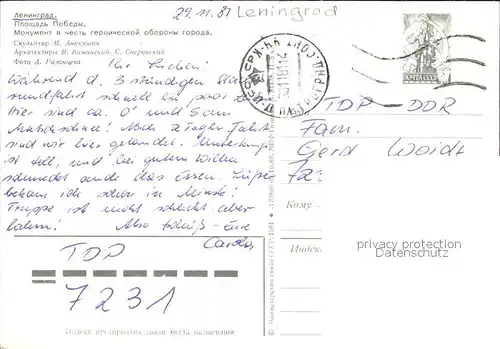 29.11.81 Leningrad
Ленинград.
Площадь Победы.
Монумент в честь героической обороны города.
Скульптор М. Аникушин
Архитекторы В. Каменский, С. Сперанский
Фото А. Рязанцева
Ihr Lieben!
Während d. 3 stündigen Stadt
rundfahrt schnell ein paar
Hier sind ca. 0° und 5 cm
Matschschnee! Nach 2 Tagen Fahrt
sind wir hier gelandet. Unterkunft
ist toll, und bei gutem Willen
schmeckt auch das Essen.
bekam ich schon in Minsk!
Truppe ist nicht schlecht aber
lahm! Also tschüß - Eure
TDP-DDR
Fam.
Gerd Woidt
72
Кому
Индекс
privacy protection
Datenschutz
TDP
7231
Индекс предприятия связи места назначения
© Министерство связи СССР. 1981